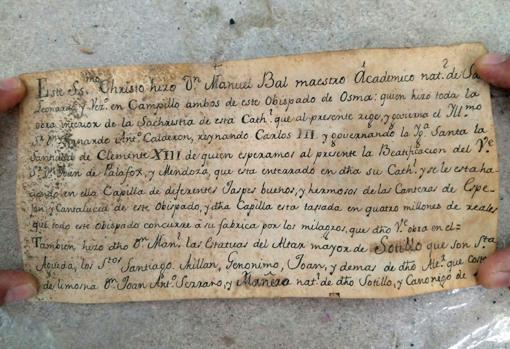 Este Ss.mo Christo hizo Dn. Manuel Bal maestro Academico nat.l de Sn
Leonardo, y Vez.o en Campillo ambos de este Obispado de Osma: quien hizo toda la
obra interior de la Sachristia de esta Cath.l que al presente rige, y govierna el Yll.mo
Sr. Dn. Bernardo Ant.o Calderon, reynando Carlos III. y governando la Yg.a Santa la
Santidad de Clemente XIII de quien esperamos al presente la Beatificacion del Ve.
Sr. Dn. Juan de Palafox, y Mendoza, que esta enterrado en dha su Cath.l y se le esta ha-
ziendo en ella Capilla de diferentes Jaspes buenos, y hermosos de las Canteras de Espe-
jon, y Cantalucia de este Obispado, y dha Capilla esta tasada en quatro millones de reales
que todo este obispado concurre a su fabrica por los milagros, que dho Ve. obra en el=
Tambien hizo dho Dn. Man.l las Estatuas del Altar mayor de Sotillo que son Sta
Agueda, los Stos Santiago, Millan, Geronimo, Joan, y demas de dho Alt.r que costeo
de limosna Dn. Joan Ant.o Serrano, y Mañero nat.l de dho Sotillo, y Canonigo de